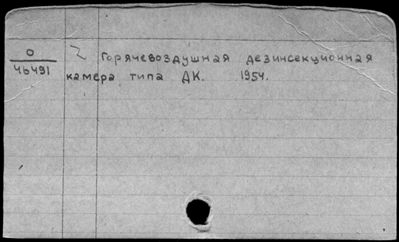 О
46491
Горячевоздушная дезинсекционная
камера типа ДК. 1954.